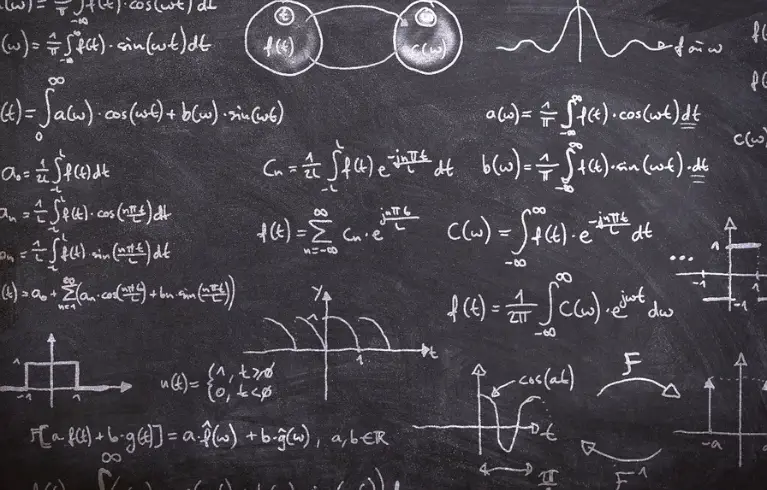 (ω) = 1/π ∫_{-∞}^{∞} f(t)·cos(ωt) dt
(ω) = 1/π ∫_{-∞}^{∞} f(t)·sin(ωt) dt
f(t)
c(ω)
(t) = ∫_0^∞ a(ω)·cos(ωt) + b(ω)·sin(ωt)
a(ω) = 1/π ∫_{-∞}^{∞} f(t)·cos(ωt) dt
b(ω) = 1/π ∫_{-∞}^{∞} f(t)·sin(ωt)·dt
c(ω)
a_0 = 1/2L ∫_{-L}^{L} f(t) dt
C_n = 1/2L ∫_{-L}^{L} f(t) e^{-jnπt/L} dt
a_n = 1/L ∫_{-L}^{L} f(t)·cos(nπt/L) dt
f(t) = ∑_{n=-∞}^{∞} C_n·e^{jnπt/L}
C(ω) = ∫_{-∞}^{∞} f(t)·e^{-jnπt/L} dt
= 1/L ∫_{-L}^{L} f(t)·sin(nπt/L) dt
(t) = a_0 + ∑_{n=1}^{∞} (a_n·cos(nπt/L) + b_n·sin(nπt/L))
f(t) = 1/2π ∫_{-∞}^{∞} C(ω)·e^{jωt} dω
... 1 -1 1
y 1 1 t
1 -1 1
u(t) = {1, t≥0
0, t<0
cos(at)
t
F
F[a·f(t) + b·g(t)] = a·f̂(ω) + b·ĝ(ω), a, b ∈ ℝ
F^{-1}
-a
π